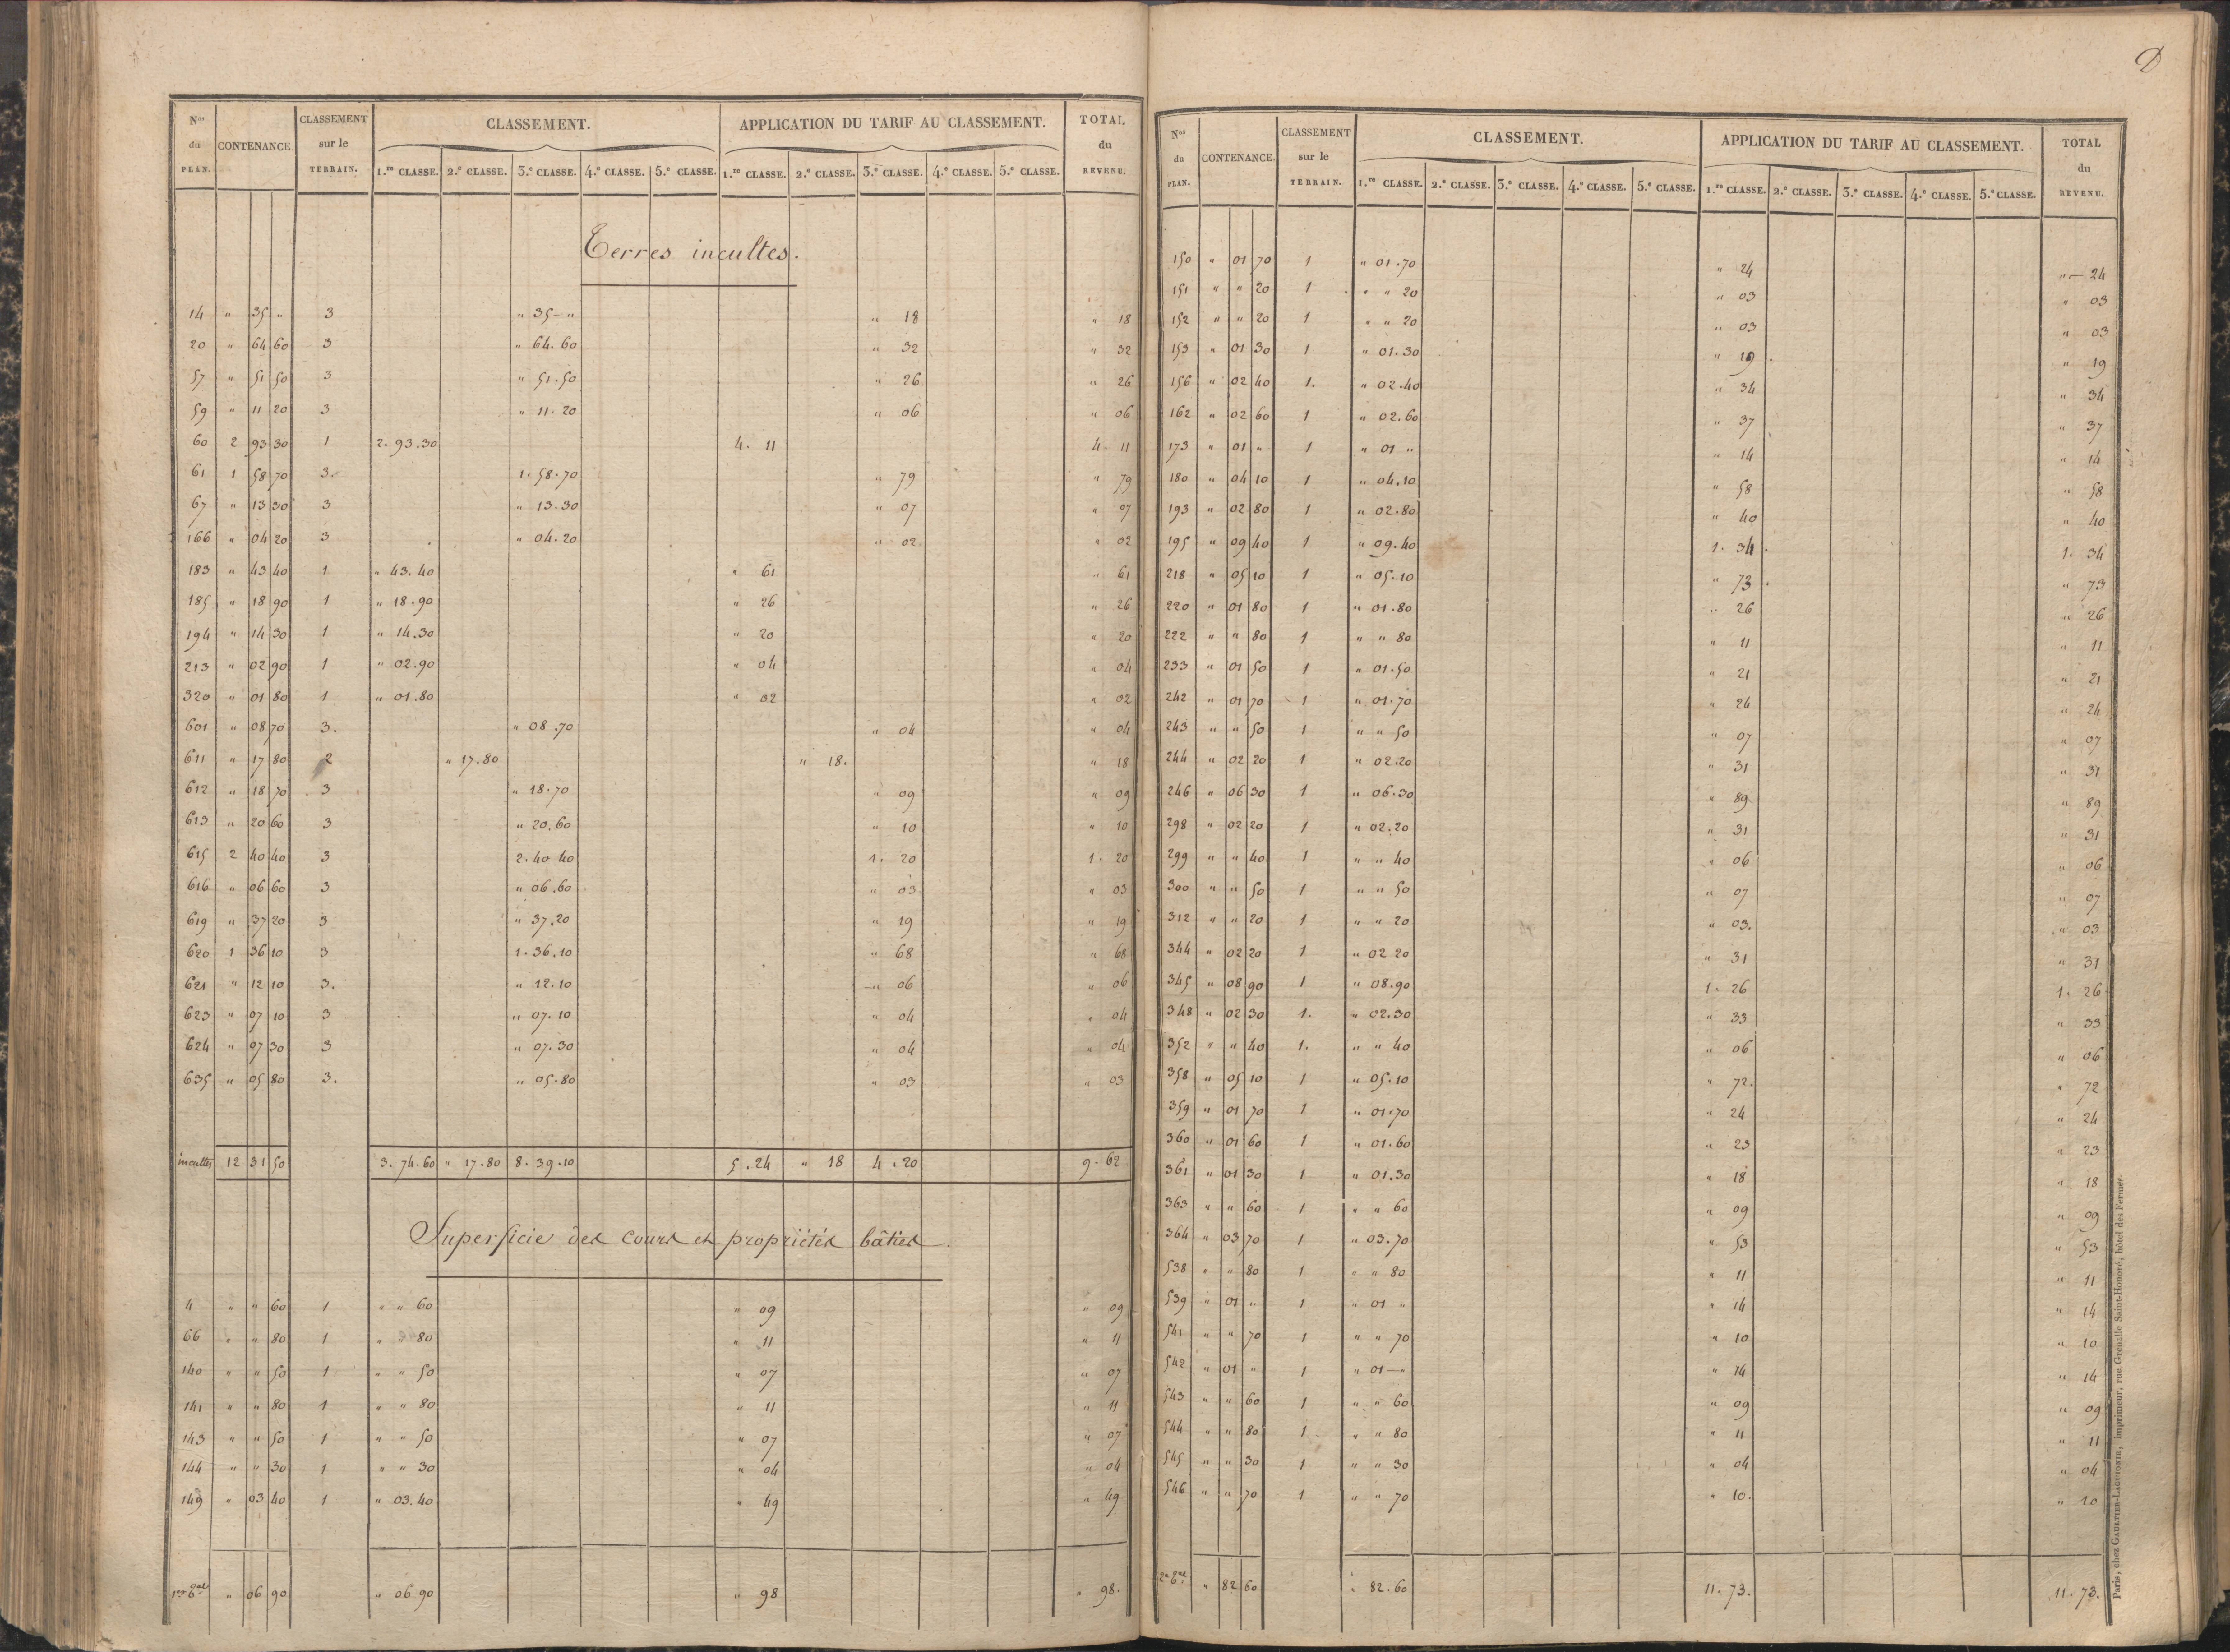 D
Nos du PLAN. CONTENANCE. CLASSEMENT sur le TERRAIN. CLASSEMENT. APPLICATION DU TARIF AU CLASSEMENT. TOTAL du REVENU.
1.re CLASSE. 2.e CLASSE. 3.e CLASSE. 4.e CLASSE. 5.e CLASSE. 1.re CLASSE. 2.e CLASSE. 3.e CLASSE. 4.e CLASSE. 5.e CLASSE.
Terres incultes.
14 " 35 " 3 " 35-" " 18 " 18
20 " 64 60 3 " 64.60 " 32 " 32
57 " 51 50 3 " 51.50 " 26 " 26
59 " 11 20 3 " 11.20 " 06 " 06
60 2 93 30 1 2.93.30 4.11 4.11
61 1 58 70 3. 1.58.70 " 79 " 79
67 " 13 30 3 " 13.30 " 07 " 07
166 " 04 20 3 " 04.20 " 02 " 02
183 " 43 40 1 " 43.40 " 61 " 61
185 " 18 90 1 " 18.90 " 26 " 26
194 " 14 30 1 " 14.30 " 20 " 20
213 " 02 90 1 " 02.90 " 04 " 04
320 " 01 80 1 " 01.80 " 02 " 02
601 " 08 70 3. " 08.70 " 04 " 04
611 " 17 80 2 " 17.80 " 18. " 18
612 " 18 70 3 " 18.70 " 09 " 09
613 " 20 60 3 " 20.60 " 10 " 10
615 2 40 40 3 2.40 40 1. 20 1. 20
616 " 06 60 3 " 06.60 " 03 " 03
619 " 37 20 3 " 37.20 " 19 " 19
620 1 36 10 3 1.36.10 " 68 " 68
621 " 12 10 3. " 12.10 " 06 " 06
623 " 07 10 3 " 07.10 " 04 " 04
624 " 07 30 3 " 07.30 " 04 " 04
635 " 05 80 3. " 05.80 " 03 " 03
incultes 12 31 50 3.74.60 " 17.80 8.39.10 5.24 " 18 4.20 9-62
Superficie des cours et propriétés bâties.
4 " " 60 1 " " 60 " 09 " 09
66 " " 80 1 " " 80 " 11 " 11
140 " " 50 1 " " 50 " 07 " 07
141 " " 80 1 " " 80 " 11 " 11
143 " " 50 1 " " 50 " 07 " 07
144 " " 30 1 " " 30 " 04 " 04
149 " 03 40 1 " 03.40 " 49 " 49
" 06 90 " 06.90 " 98 " 98.
Nos du PLAN. CONTENANCE. CLASSEMENT sur le TERRAIN. CLASSEMENT. APPLICATION DU TARIF AU CLASSEMENT. TOTAL du REVENU.
1.re CLASSE. 2.e CLASSE. 3.e CLASSE. 4.e CLASSE. 5.e CLASSE. 1.re CLASSE. 2.e CLASSE. 3.e CLASSE. 4.e CLASSE. 5.e CLASSE.
150 " 01 70 1 " 01.70 " 24 "-24
151 " " 20 1 " " 20 " 03 " 03
152 " " 20 1 " " 20 " 03 " 03
153 " 01 30 1 " 01.30 " 19 " 19
156 " 02 40 1. " 02.40 " 34 " 34
162 " 02 60 1 " 02.60 " 37 " 37
173 " 01 " 1 " 01 " " 14 " 14
180 " 04 10 1 " 04.10 " 58 " 58
193 " 02 80 1 " 02.80 " 40 " 40
195 " 09 40 1 " 09.40 1. 34 1. 34
218 " 05 10 1 " 05.10 " 73 " 73
220 " 01 80 1 " 01.80 " 26 " 26
222 " " 80 1 " " 80 " 11 " 11
233 " 01 50 1 " 01.50 " 21 " 21
242 " 01 70 1 " 01.70 " 24 " 24
243 " " 50 1 " " 50 " 07 " 07
244 " 02 20 1 " 02.20 " 31 " 31
246 " 06 30 1 " 06.30 " 89 " 89
298 " 02 20 1 " 02.20 " 31 " 31
299 " " 40 1 " " 40 " 06 " 06
300 " " 50 1 " " 50 " 07 " 07
312 " " 20 1 " " 20 " 03. " 03
344 " 02 20 1 " 02 20 " 31 " 31
345 " 08 90 1 " 08.90 1. 26 1. 26
348 " 02 30 1. " 02.30 " 33 " 33
352 " " 40 1. " " 40 " 06 " 06
358 " 05 10 1 " 05.10 " 72. " 72
359 " 01 70 1 " 01.70 " 24 " 24
360 " 01 60 1 " 01.60 " 23 " 23
361 " 01 30 1 " 01.30 " 18 " 18
363 " " 60 1 " " 60 " 09 " 09
364 " 03 70 1 " 03.70 " 53 " 53
538 " " 80 1 " " 80 " 11 " 11
539 " 01 " 1 " 01 " " 14 " 14
541 " " 70 1 " " 70 " 10 " 10
542 " 01 " 1 " 01-" " 14 " 14
543 " " 60 1 " " 60 " 09 " 09
544 " " 80 1 " " 80 " 11 " 11
545 " " 30 1 " " 30 " 04 " 04
546 " " 70 1 " " 70 " 10. " 10
" 82 60 " 82.60 11.73. 11.73.
Paris, chez GAULTIER-LAGUIONIE, imprimeur, rue Grenelle Saint-Honoré, hôtel des Fermes.